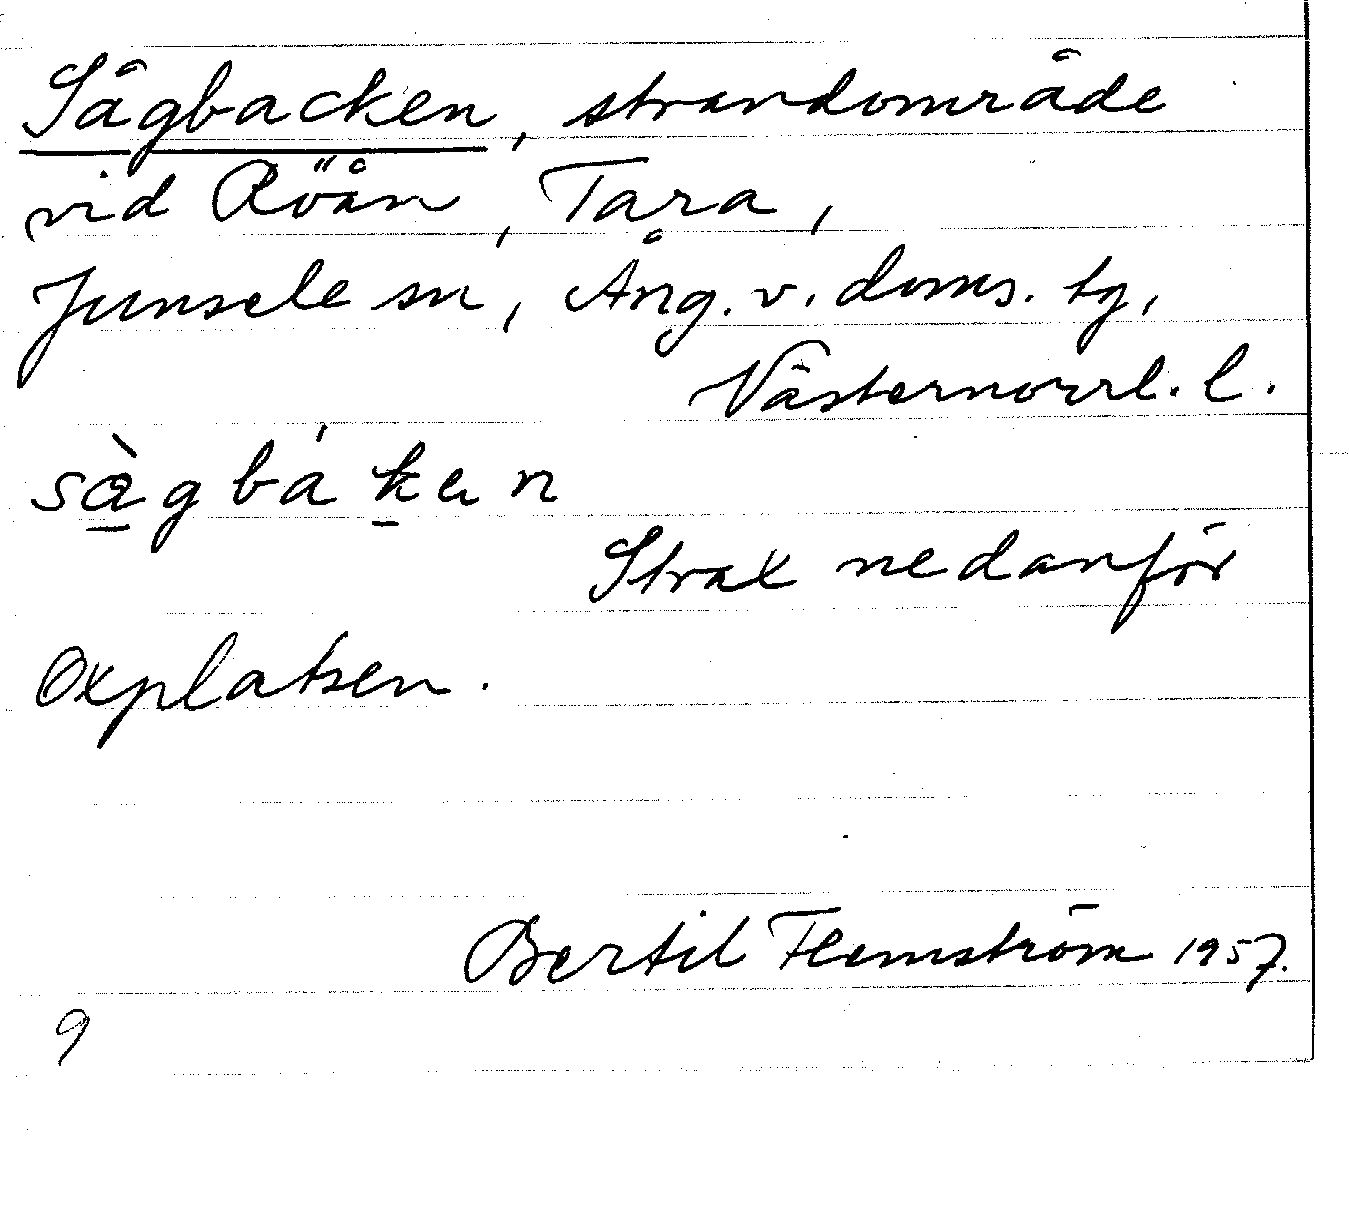 Sågbacken, strandområde
vid Röån, Tara,
Junsele sn, Ång. v. doms. tg,
Västernorrl. l.
Strax nedanför
Oxplatsen.
Bertil Flemström 1957.
9